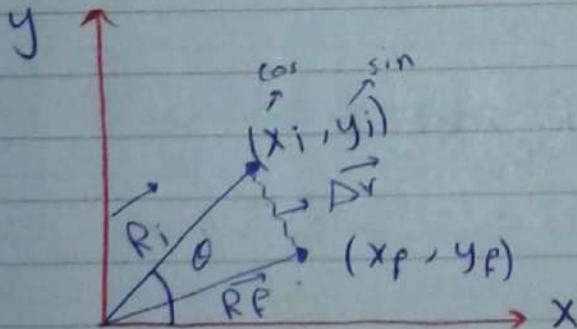 y
cos sin
(xi, yi)
Δr
Ri θ
(xf, yf)
Rf
x